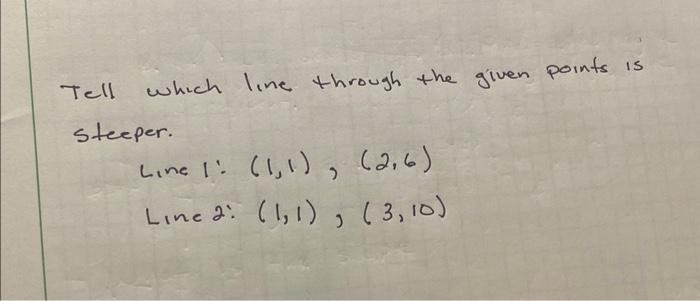 Tell which line through the given points is
steeper.
Line 1: (1,1), (2,6)
Line 2: (1,1), (3,10)